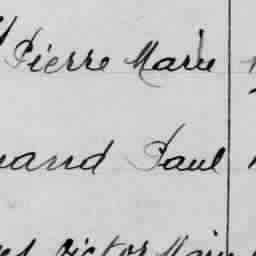 Pierre Marie
nand Paul
Victor Marie